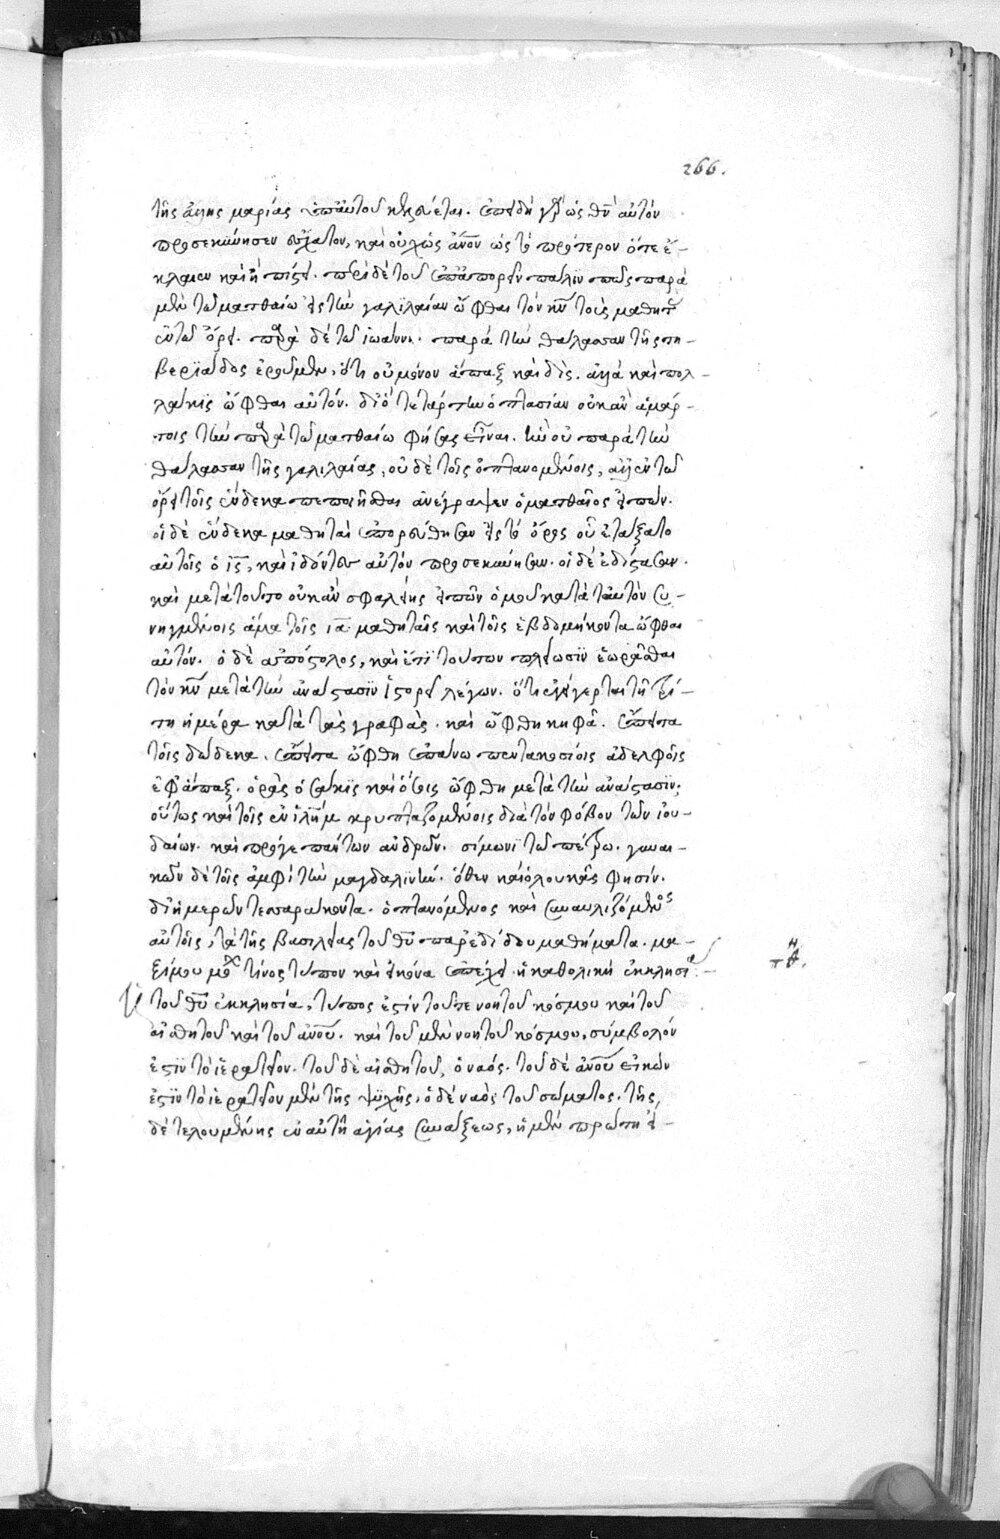 266.
τῆς ἄλλης μαρίας ὑπ' αὐτοῦ κηρύεται. ἐπειδὴ γὰρ ὡς θν̅ αὐτὸν
προσεκύνησεν εὐχαῖον, καὶ οὐχ ὡς ἄν̅ον ὡς τὸ πρότερον ὅτε ἔ-
κλαιεν καὶ ἠπίστει. περὶ δὲ τοῦ ἀπορεῖν πάλιν πῶς παρὰ
μὲν τῷ ματθαίῳ εἰς τὴν γαλιλαίαν ὤφθαι τὸν κν̅ τοῖς μαθητ
ἐν τῷ ὄρει. παρὰ δὲ τῷ ἰωάννῃ. παρὰ τὴν θάλασσαν τῆς τι-
βεριάδος ἐροῦμεν, ὅτι οὐ μόνον ἅπαξ καὶ δὶς. ἀλλὰ καὶ πολ-
λάκϊς ὤφθαι αὐτόν. διὸ τετάρτην ὀπτασίαν οὐκ ἂν ἁμάρ-
τοις τὴν παρὰ τῷ ματθαίῳ φήσας εἶναι. κἂν οὐ παρὰ τὴν
θάλασσαν τῆς γαλιλαίας, οὐδὲ τοῖς ὀπτανομένοις, ἀλλ' ἐν τῷ
ὄρει τοῖς ἕνδεκα πεποιῆσθαι ἀνέγραψεν ὁ ματθαῖος εἰπών.
οἱ δὲ ἕνδεκα μαθηταὶ ἐπορεύθησαν εἰς τὸ ὄρος οὗ ἐτάξατο
αὐτοῖς ὁ ις̅, καὶ ἰδόντες αὐτὸν προσεκύνησαν. οἱ δὲ ἐδίστασαν.
καὶ μετὰ τοῦτο οὐκ ἂν σφαλείης εἰπὼν ὁμοῦ κατὰ ταὐτὸν συ-
νηγμένοις ἅμα τοῖς ια̅ μαθηταῖς καὶ τοῖς ἑβδομήκοντα ὤφθαι
αὐτόν. ὁ δὲ ἀπόστολος, καὶ ἐπὶ τούτων πλείωσϊν ἑωρᾶσθαι
τὸν κν̅ μετὰ τὴν ἀνάστασϊν ἱστορεῖ λέγων. ὅτι ἐγείγερται τῇ τρί-
τῃ ἡμέρᾳ κατὰ τὰς γραφὰς. καὶ ὤφθη κηφᾷ. ἔπειτα
τοῖς δώδεκα. ἔπειτα ὤφθη ἐπάνω πεντακοσίοις ἀδελφοῖς
ἐφάπαξ. ὁρᾷς ὁσάκϊς καὶ ὅσοις ὤφθη μετὰ τὴν ἀνάστασϊν;
οὕτως καὶ τοῖς ἐν ἱλη̅μ κρυπταζομένοις διὰ τὸν φόβον τῶν ἰου-
δαίων. καὶ πρό γε πάντων ἀνδρῶν. σίμωνϊ τῷ πέτρῳ. γυναι-
κῶν δὲ τοῖς ἀμφὶ τὴν μαγδαλϊνήν. ὅθεν καὶ ὁ λουκᾶς φησίν.
δι' ἡμερῶν τεσσαράκοντα. ὀπτανόμενος καὶ συναυλιζόμενος
αὐτοῖς, τὰ τῆς βασιλείας τοῦ θυ̅ παρεδίδου μαθήματα. μα-
ξίμου μοχ τίνος τύπον καὶ εἰκόνα ἐπέχει ἡ καθολικὴ ἐκκλησία.
πθ.
τοῦ θυ̅ ἐκκλησία, τύπος ἐστὶν τοῦ τε νοητοῦ κόσμου καὶ τοῦ
αἰσθητοῦ καὶ τοῦ ἀνο̅υ. καὶ τοῦ μὲν νοητοῦ κόσμου, σύμβολόν
ἐστϊν τὸ ἱερατεῖον. τοῦ δὲ αἰσθητοῦ, ὁ ναός. τοῦ δὲ ἀνο̅υ εἰκὼν
ἐστϊν τὸ ἱερατεῖον μὲν τῆς ψυχῆς, ὁ δὲ ναὸς τοῦ σώματος. τῆς
δὲ τελουμένης ἐν αὐτῇ ἁγίας συνάξεως, ἡ μὲν πρώτη εἴ-